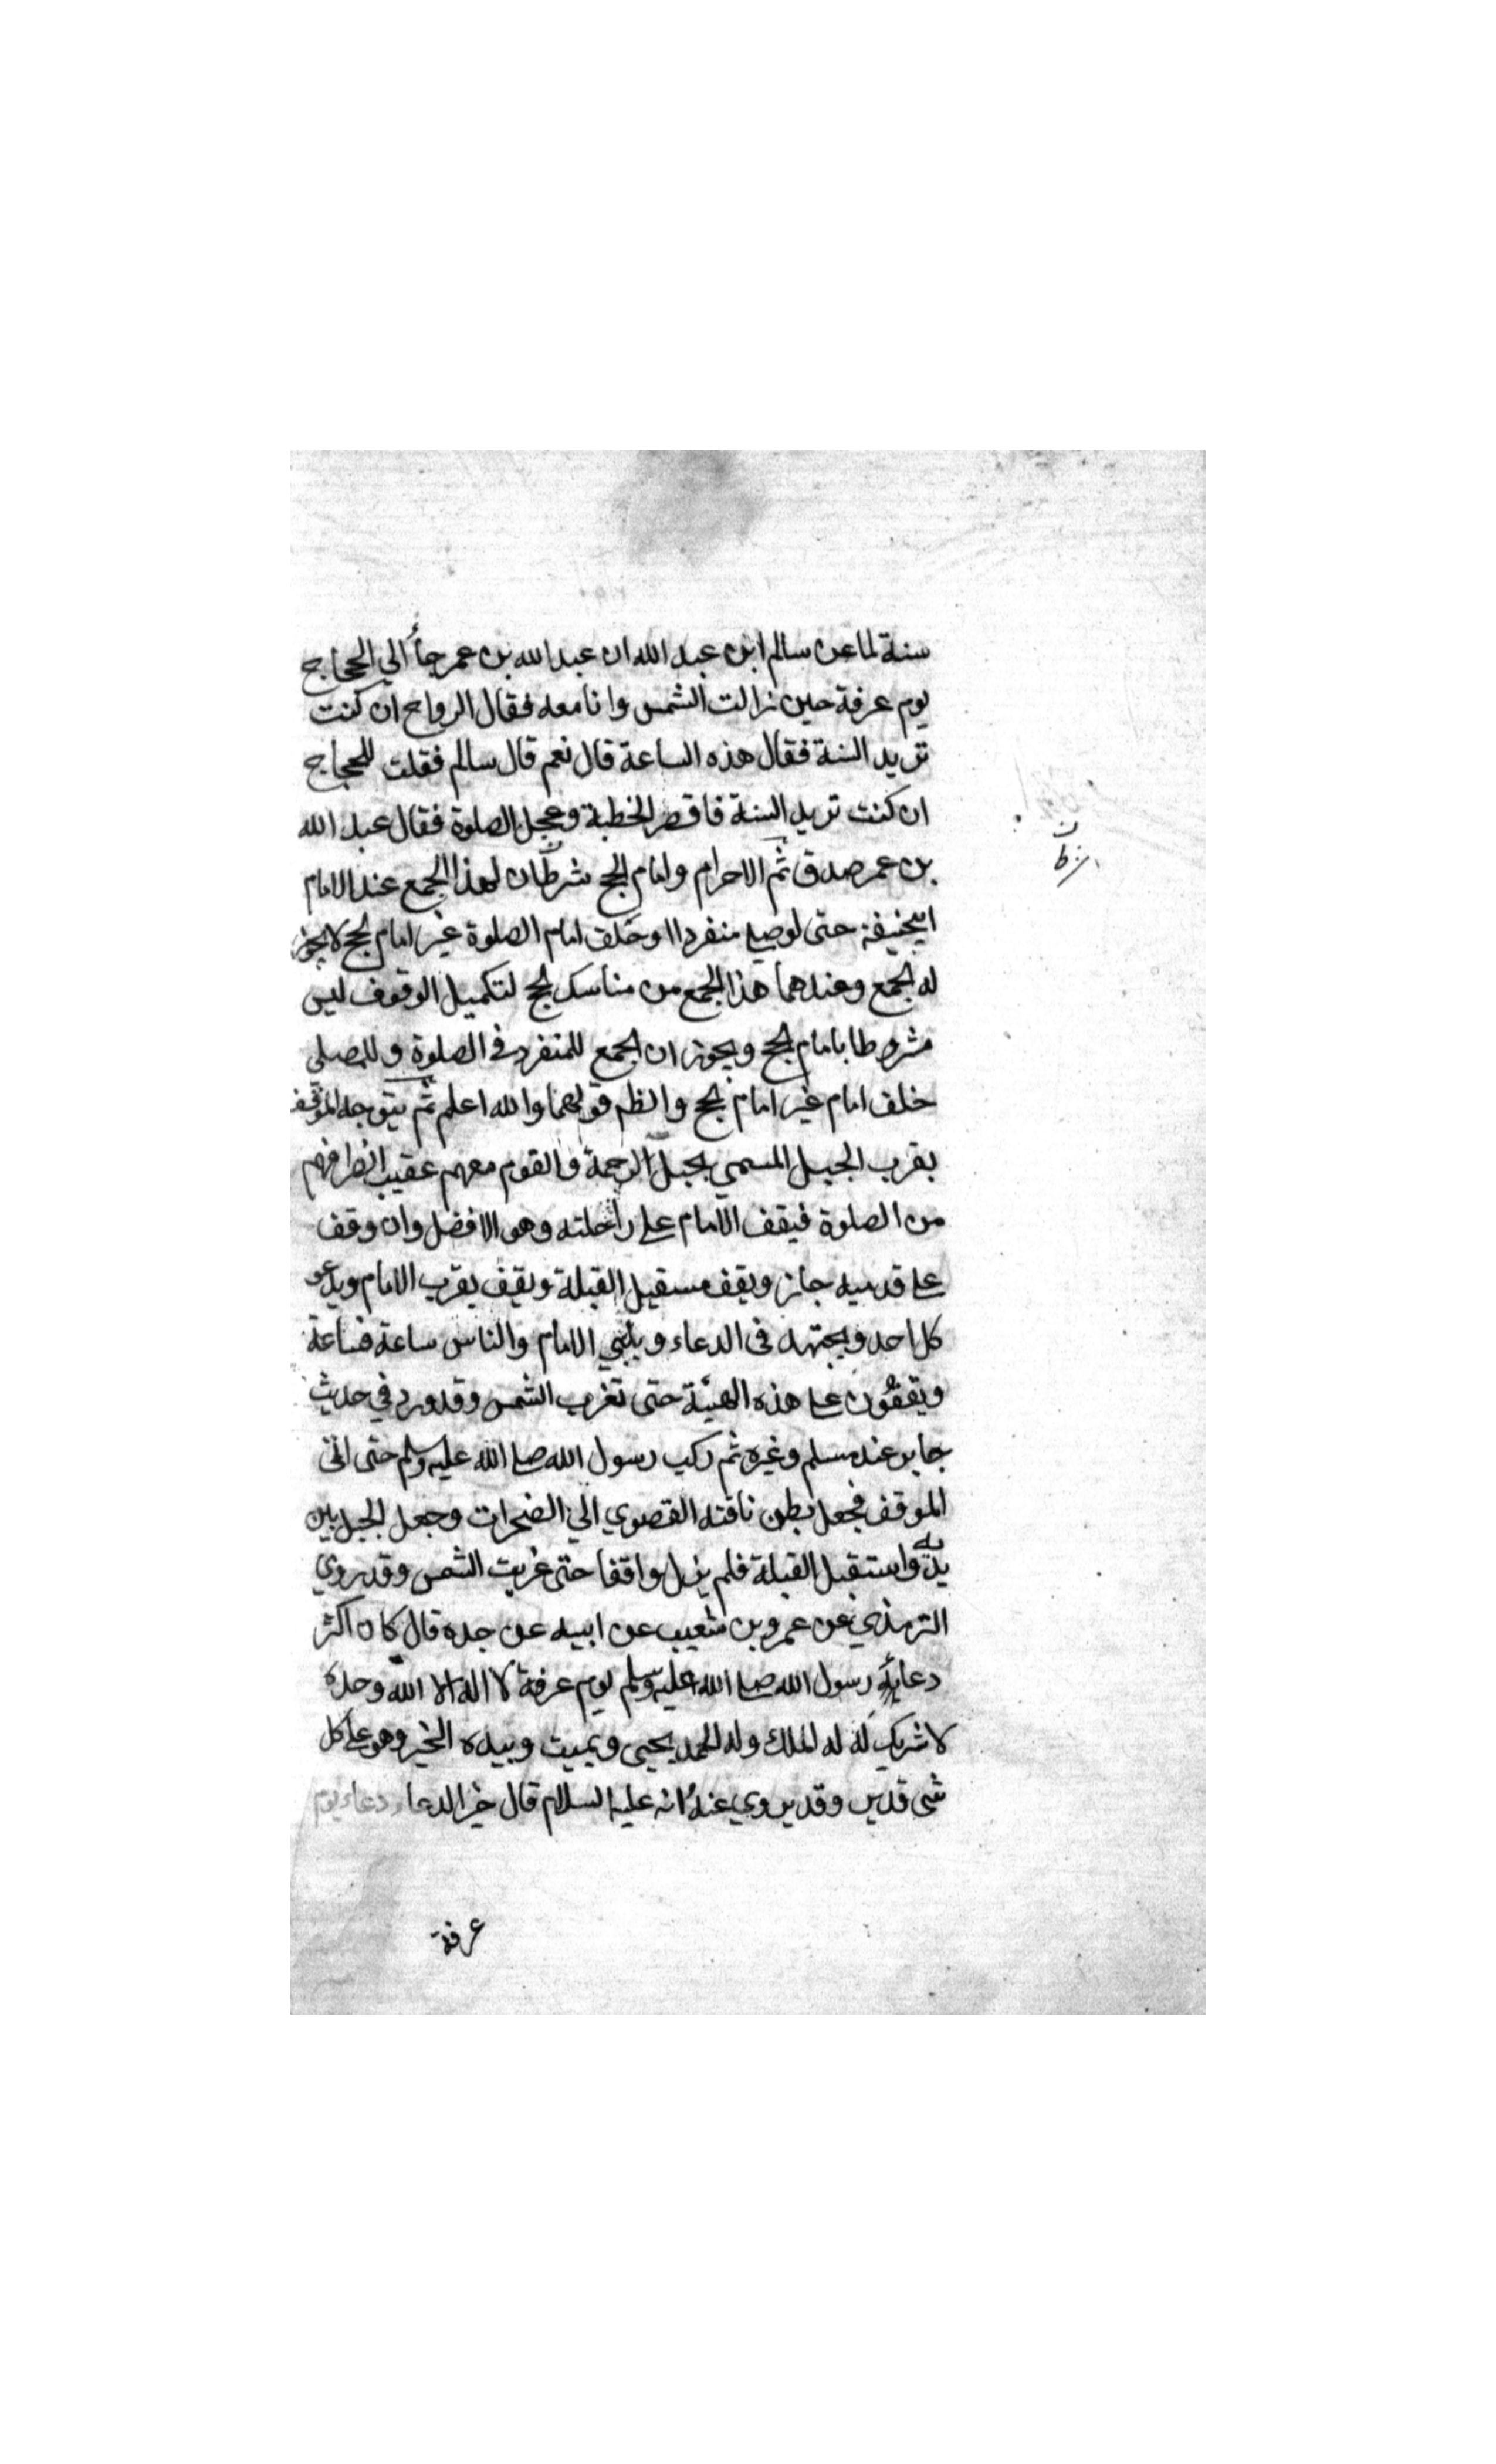 سنة لما عن سالم ابن عبد الله ان عبد الله بن عمر جاء الي الحجاج
يوم عرفة حين زالت الشمس وانا معه فقال الرواح ان كنت
تريد السنة فقال هذه الساعة قال نعم قال سالم فقلت للحجاج
ان كنت تريد السنة فاقصر الخطبة وعجل الصلوة فقال عبد الله
بن عمر صدق ثم الاحرام وامام الحج شرطان لهذا الجمع عند الامام
ابيحنيفة حتى لو صلى منفردا او خلف امام الصلوة غير امام الحج لا يجوز
له الجمع وعندهما هذا الجمع من مناسك الحج لتكميل الوقوف ليس
مشروطا بامام الحج ويجوز ان الجمع للمنفرد في الصلوة وللمصلي
خلف امام غير امام الحج والظهر قولهما والله اعلم ثم يتوجه الموقف
بقرب الجبل المسمي بجبل الرحمة والقوم معهم عقيب انصرافهم
من الصلوة فيقف الامام على راحلته وهو الافضل وان وقف
على قدميه جاز ويقف مستقبل القبلة ويقيف بقرب الامام ويدعو
كل احد ويجتهد في الدعاء ويلبي الامام والناس ساعة فساعة
ويقفون على هذه الهيئة حتى تغرب الشمس وقد ورد في حديث
جابر عند مسلم وغيره ثم ركب رسول الله صلى الله عليه وسلم حتى اتى
الموقف فجعل بطن ناقته القصوي الي الصخرات وجعل الجبل بين
يديه واستقبل القبلة فلم يزل واقفا حتى غربت الشمس وقد يروي
الترمذي عن عمرو بن شعيب عن ابيه عن جده قال كان اكثر
دعائه رسول الله صلى الله عليه وسلم يوم عرفة لا اله الا الله وحده
لا شريك له له الملك وله الحمد يحيى ويميت وبيده الخير وهو على كل
شي قدير وقد يروي عنه انه عليه السلام قال خير الدعاء دعاء يوم
عرفة